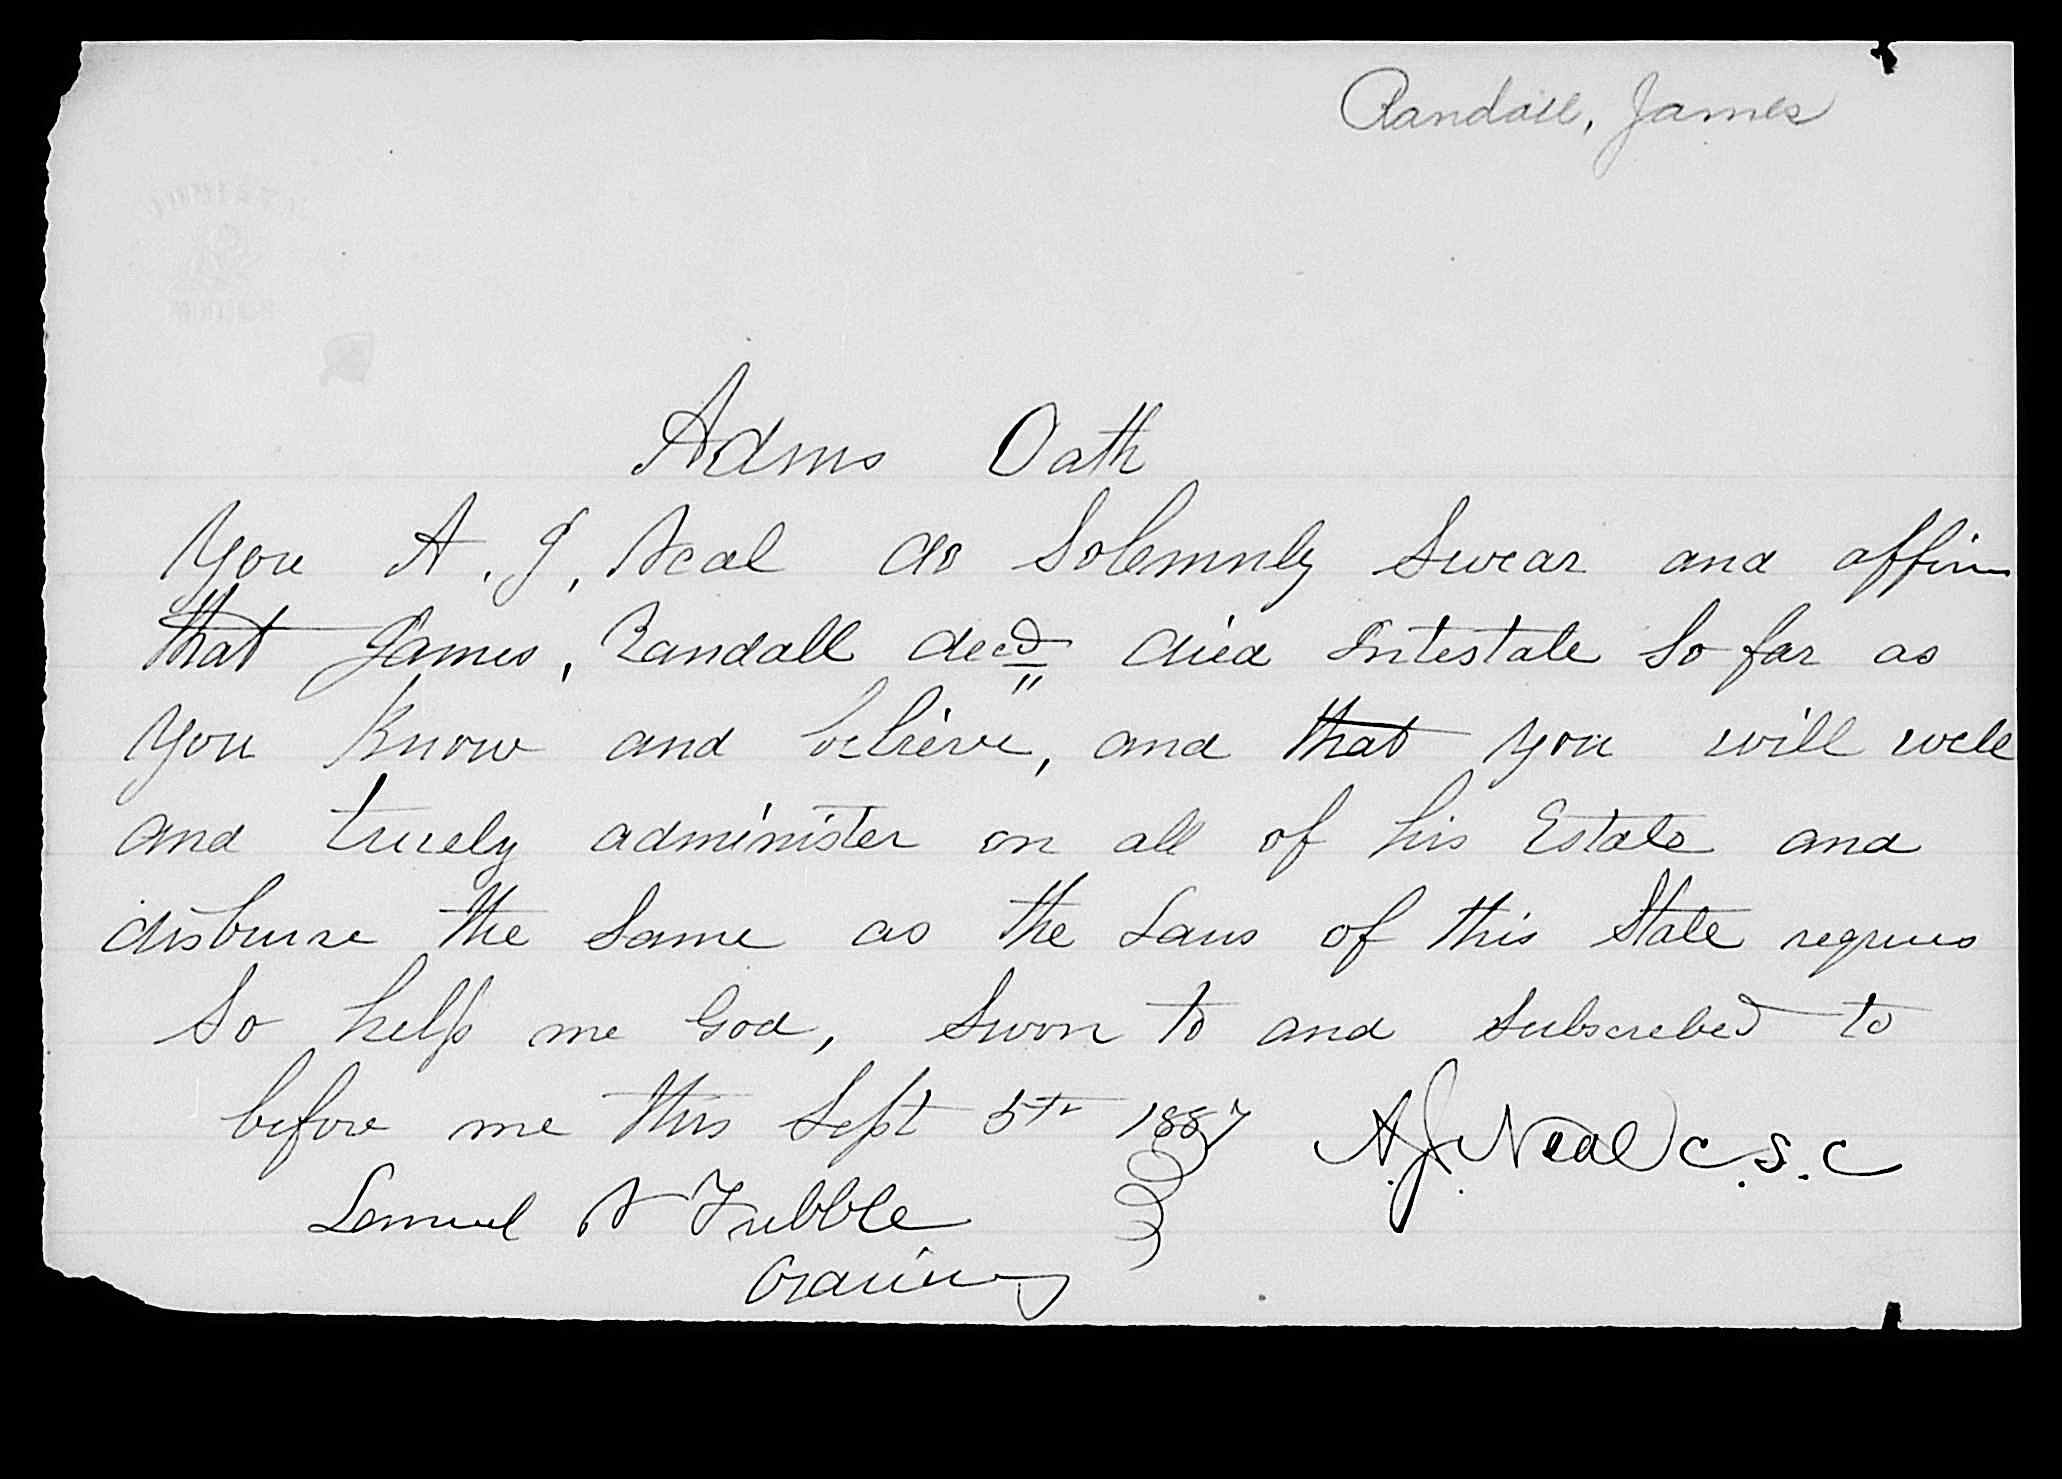 Randall, James
Adms Oath
You A. J. Neal do Solemnly Swear and affirm
that James, Randall decd died Intestate So far as
you Know and believe, and that you will well
and truely administer on all of his Estate and
disburse the Same as the Laws of this State requires
So help me God, Sworn to and subscribed to
before me this Sept 5th 1887
A. J. Neal C. S. C
Lemuel A Tribble
Ordinary